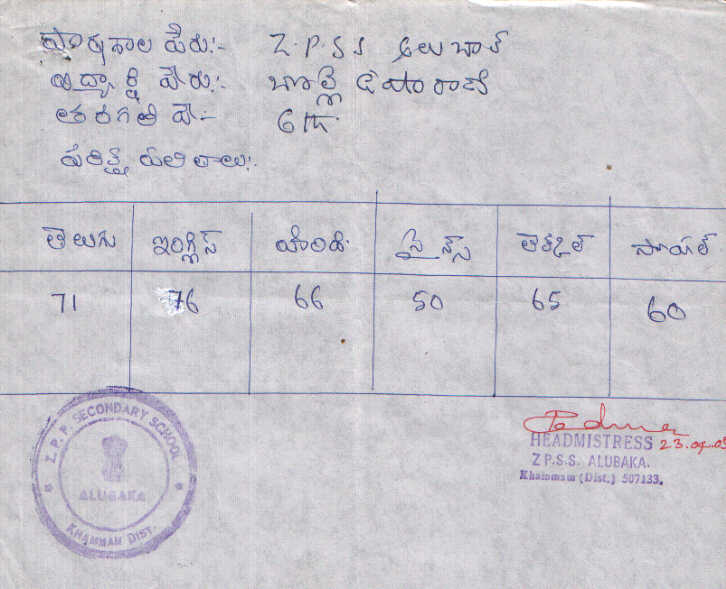 పాఠశాల పేరు:- Z.P.S.S ఆలుబాక
విద్యార్థి పేరు:- బొల్లె ఉషారాణి
తరగతి పే:- 6 th
పరీక్ష ఫలితాలు:-
తెలుగు ఇంగ్లీస్ హిందీ సైన్స్ లెక్కల్ సోషల్
71 76 66 50 65 60
Z.P.P. SECONDARY SCHOOL
ALUBAKA
KHAMMAM DIST.
HEADMISTRESS 23.04.05
Z P.S.S. ALUBAKA.
Khammam (Dist.) 507133.